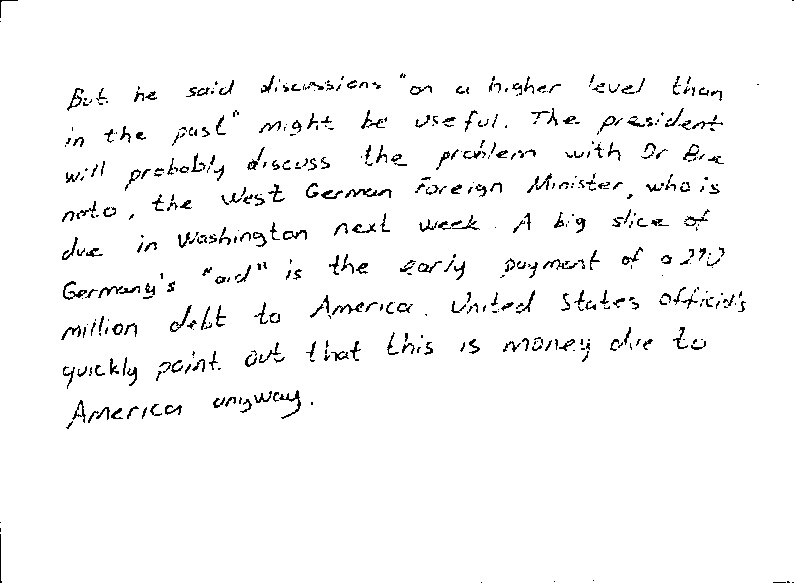 But he said discussions "on a higher level than
in the past" might be useful. The president
will probably discuss the problem with Dr Bre
nato, the West German Foreign Minister, who is
due in Washington next week. A big slice of
Germany's "aid" is the early payment of a
million debt to America. United States officials
quickly point out that this is money due to
America anyway.